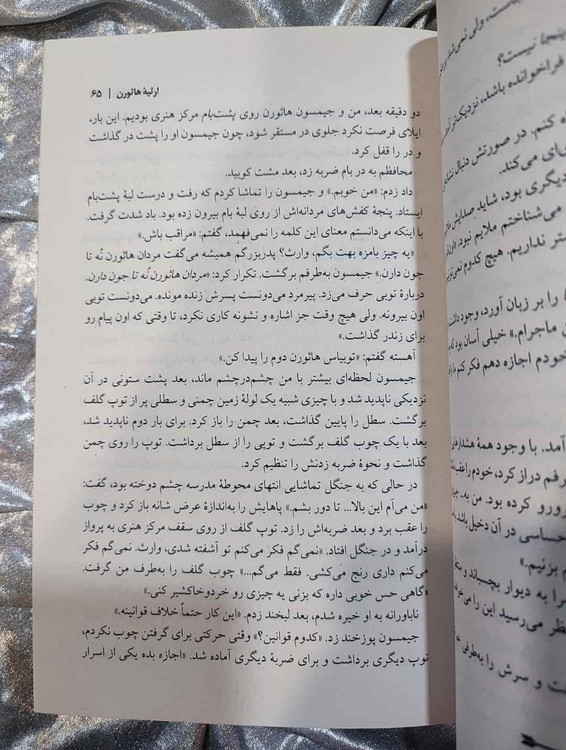 ارثیهٔ هاثورن | ۶۵
دو دقیقه بعد، من و جیمسون هاثورن روی پشت‌بام مرکز هنری بودیم. این بار،
ایلای فرصت نکرد جلوی در مستقر شود، چون جیمسون او را پشت در گذاشت
و در را قفل کرد.
محافظم به در بام ضربه زد، بعد مشت کوبید.
داد زدم: «من خوبم.» و جیمسون را تماشا کردم که رفت و درست لبهٔ پشت‌بام
ایستاد. پنجهٔ کفش‌های مردانه‌اش از روی لبهٔ بام بیرون زده بود. باد شدت گرفت.
با اینکه می‌دانستم معنای این کلمه را نمی‌فهمد، گفتم: «مراقب باش.»
«یه چیز بامزه بهت بگم، وارث؟ پدربزرگم همیشه می‌گفت مردان هاثورن نُه تا
جون دارن.» جیمسون به‌طرفم برگشت. تکرار کرد: «مردان هاثورن نُه تا جون دارن.
دربارهٔ توبی حرف می‌زد. پیرمرد می‌دونست پسرش زنده مونده. می‌دونست توبی
اون بیرونه. ولی هیچ وقت جز اشاره و نشونه کاری نکرد، تا وقتی که اون پیام رو
برای زندر گذاشت.»
آهسته گفتم: «توبیاس هاثورن دوم را پیدا کن.»
جیمسون لحظه‌ای بیشتر با من چشم‌درچشم ماند، بعد پشت ستونی در آن
نزدیکی ناپدید شد و با چیزی شبیه یک لولهٔ زمین چمنی و سطلی پر از توپ گلف
برگشت. سطل را پایین گذاشت، بعد چمن را باز کرد. برای بار دوم ناپدید شد،
بعد با یک چوب گلف برگشت و توپی را از سطل برداشت. توپ را روی چمن
گذاشت و نحوهٔ ضربه زدنش را تنظیم کرد.
در حالی که به جنگل تماشایی انتهای محوطهٔ مدرسه چشم دوخته بود، گفت:
«من می‌آم این بالا... تا دور بشم.» پاهایش را به‌اندازهٔ عرض شانه باز کرد و چوب
را عقب برد و بعد ضربه‌اش را زد. توپ گلف از روی سقف مرکز هنری به پرواز
درآمد و در جنگل افتاد. «نمی‌گم فکر می‌کنم تو آشفته شدی، وارث. نمی‌گم فکر
می‌کنم داری رنج می‌کشی. فقط می‌گم...» چوب گلف را به‌طرف من گرفت.
«گاهی حس خوبی داره که بزنی یه چیزی رو خردوخاکشیر کنی.»
ناباورانه به او خیره شدم، بعد لبخند زدم. «این کار حتماً خلاف قوانینه.»
جیمسون پوزخند زد. «کدوم قوانین؟» وقتی حرکتی برای گرفتن چوب نکردم،
توپ دیگری برداشت و برای ضربهٔ دیگری آماده شد. «اجازه بده یکی از اسرار
ینجا نیست؟
فراخوانده باشد، نزدیک‌تر
اه کنم. در صورتش دنبال
وای می‌کند.
دیگری بود، شاید صدایش
می‌شناختم ملایم نبود:
ستر نداریم. هیچ کدوم
را بر زبان آورد، وجود
ماجرام.» خیلی آسان بود
خودم اجازه دهم فکر کنم
آمد. با وجود همهٔ
رفم دراز کرد، خودم را
رورو کرده بود. من به،
حساسی در آن دخیل باشد،
م بزنیم.»
سرا به دیوار بچسباند و
نظر می‌رسید این را
ت و سرش را به‌طرفی